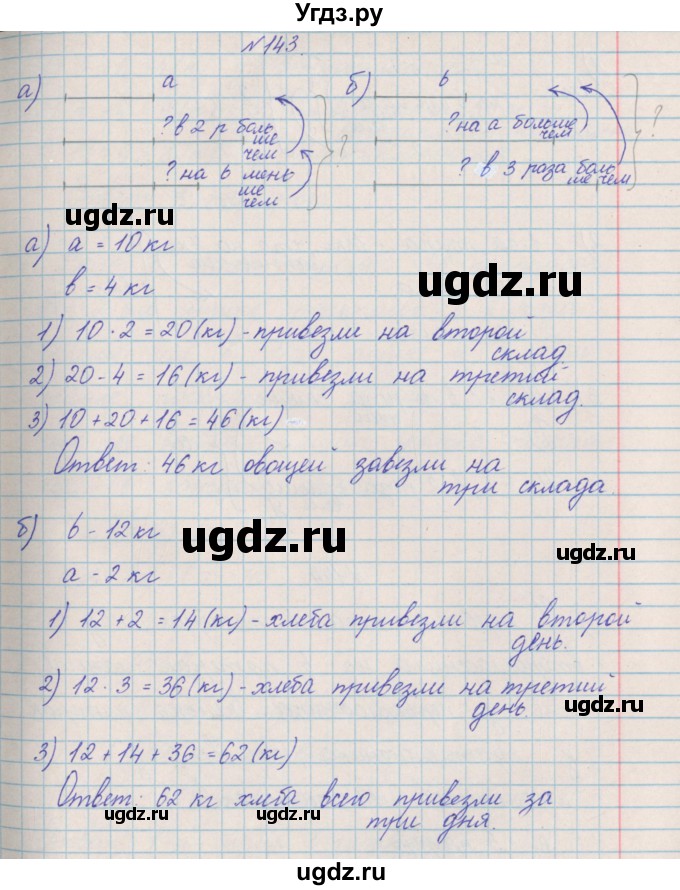 Угдз.ру
№143.
а) а б) b
? в 2 р боль ? на а больше
ше чем
чем ?
? ? в 3 раза боль
? на b мень ше чем
ше
чем
ugdz.ru
а) а = 10 кг
ugdz.ru
в = 4 кг
1) 10 · 2 = 20 (кг) - привезли на второй
склад.
2) 20 - 4 = 16 (кг) - привезли на третий
ugdz.ru ugdz.ru
склад.
3) 10 + 20 + 16 = 46 (кг)
Ответ: 46 кг овощей завезли на
три склада.
б) b - 12 кг
ugdz.ru ugdz.ru
а - 2 кг
1) 12 + 2 = 14 (кг) - хлеба привезли на второй
день.
2) 12 · 3 = 36 (кг) - хлеба привезли на третий
ugdz.ru ugdz.ru
день.
3) 12 + 14 + 36 = 62 (кг)
Ответ: 62 кг хлеба всего привезли за
ugdz.ru ugdz.ru
три дня.
ugdz.ru
ugdz.ru